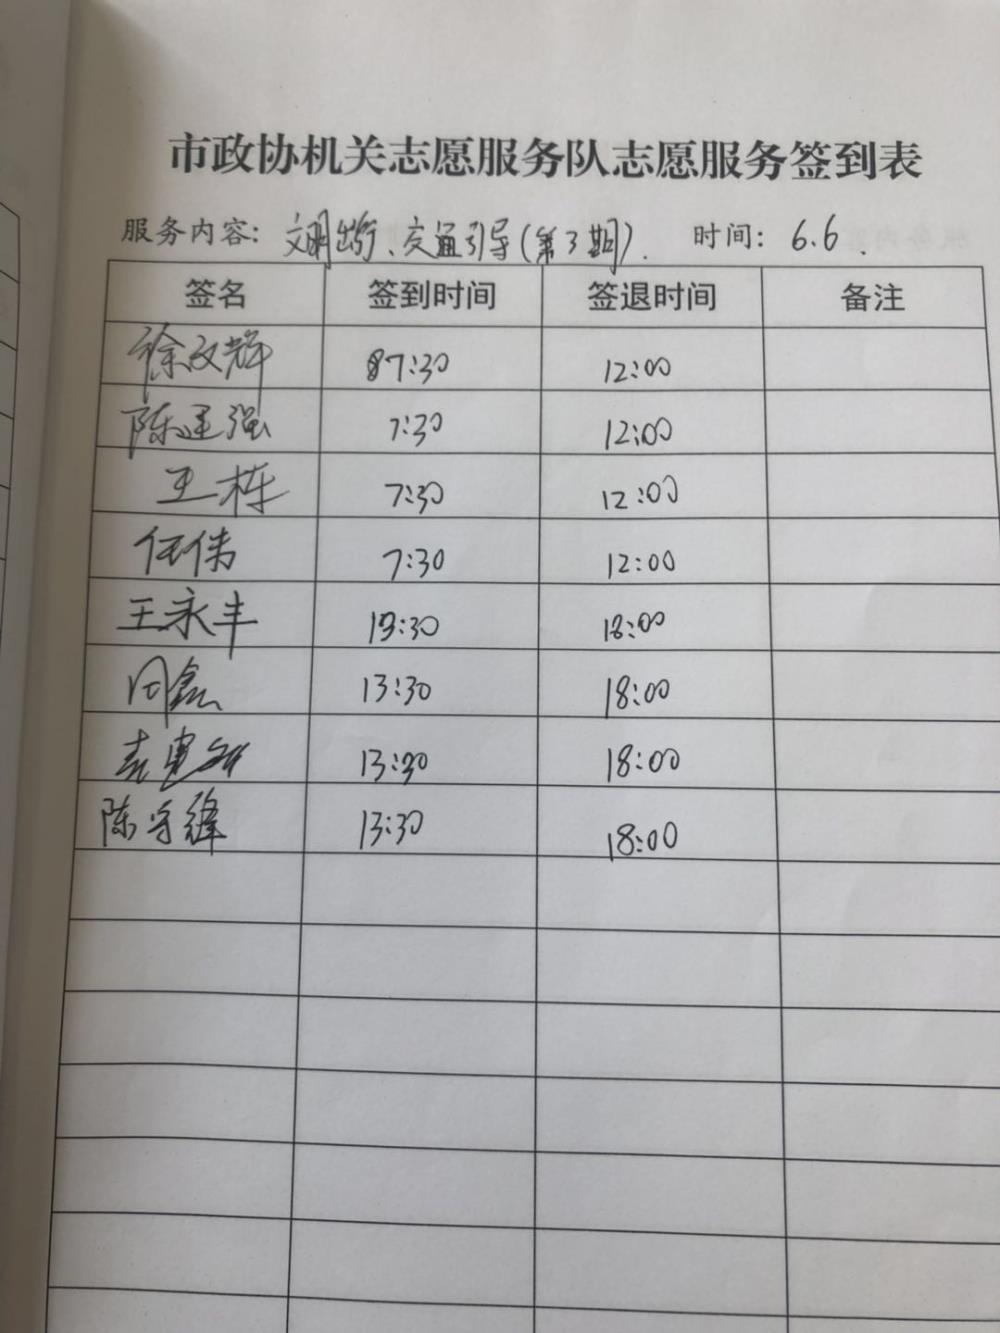 市政协机关志愿服务队志愿服务签到表
服务内容：文明出行、交通引导（第3期）. 时间：6.6.
签名 签到时间 签退时间 备注
徐文辉 7:30 12:00
陈建强 7:30 12:00
王栋 7:30 12:00
任伟 7:30 12:00
王永丰 13:30 18:00
周磊 13:30 18:00
13:30 18:00
陈守锋 13:30 18:00